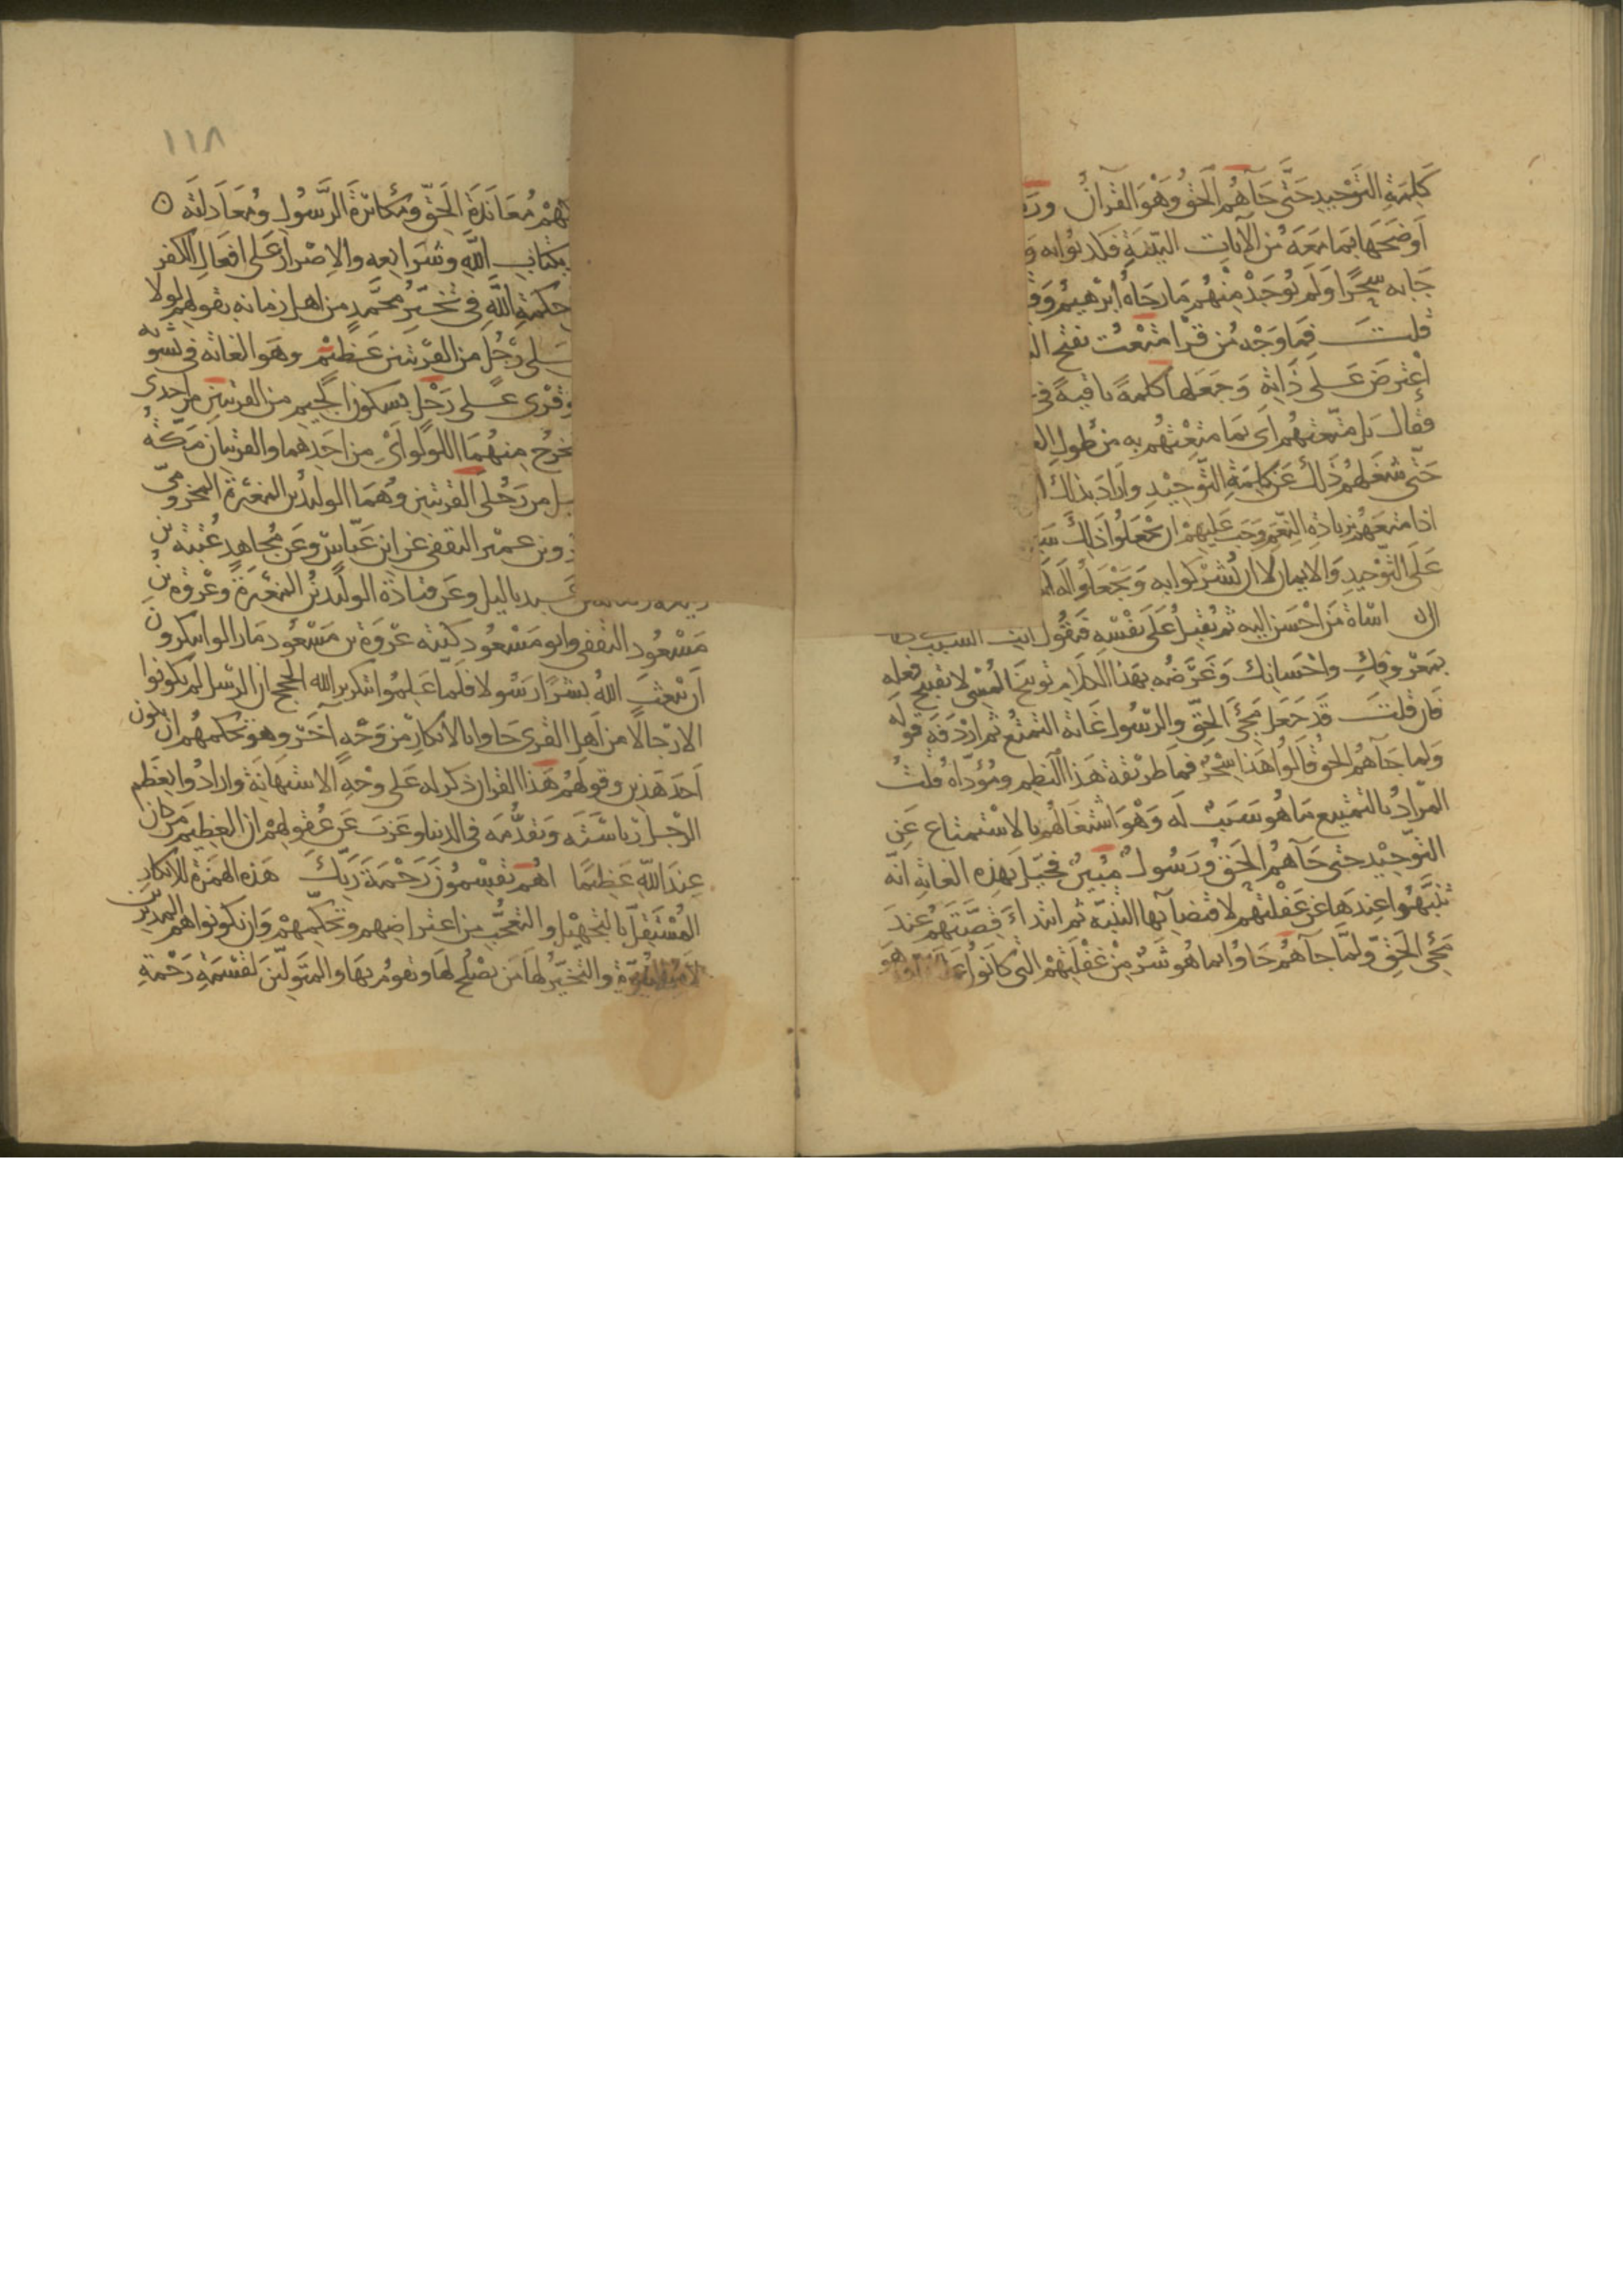 كلمة التوحيد حتى جآهم الحق وهو القرآن
أوضحها بما معه من الآيات البينة فكذبوا به
جا به سحرا ولم يوجد منهم ما رجاه ابرهيم
قلت فما وجه من قرا متعت بفتح
اعترض على ذاته وجعلها كلمة باقية في
فقال بل متعتهم اى بما متعتهم به من طول
حتى شغلهم ذلك عن كلمة التوحيد واراد بذلك
اذا متعهم بزيادة النعم وجب عليهم ان يجعلوا ذلك
على التوحيد والايمان لا ان يشركوا به ويجعلوا له
اساة من احسن اليه ثم يقبل على نفسه فيقول انت السبب
بمعروفك واحسانك وغرضه بهذا الكلام توبيخ المسى لا تقبيح فعله
فان قلت قد جعل مجئ الحق والرسول غاية التمتع ثم اردفه قوله
ولما جآهم الحق قالوا هذا سحر فما طريقة هذا النظم ومؤداه قلت
المراد بالتمتيع ما هو سبب له وهو اشتغالهم بالاستمتاع عن
التوحيد حتى جآهم الحق ورسول مبين فخيل بهذه الغاية انه
تنبهوا عندها عن غفلتهم لاقتضآيها التنبه ثم ابتداء قصتهم عند
مجئ الحق ولما جآهم جاوا بما هو شر من غفلتهم التى كانوا
١١٨
معاندة الحق ومكابرة الرسول ومعاداته
بكتاب الله وشرايعه والاصرار على افعال الكفر
حكمة الله في تخير محمد من اهل زمانه بقولهم لولا
على رجل من القريتين عظيم وهو الغاية في تشويه
وقرى على رجل بسكون الجيم من القريتين من احدى
يخرج منهما اللولو اى من احدهما والقريتان مكة
من رجلى القريتين وهما الوليد بن المغيرة المخزومى
بن عمير الثقفى عن ابن عباس وعن مجاهد عتبة بن
ياليل وعن قتادة الوليد بن المغيرة وعروة بن
مسعود الثقفى وابو مسعود كنية عروة بن مسعود ما زالوا ينكرون
ان يبعث الله بشرا رسولا فلما علموا بتكرير الله الحجج ان الرسل لم يكونوا
الا رجالا من اهل القرى جاوا بالانكار من وجه آخر وهو تحكمهم ان يكون
احد هذين وقولهم هذا القران ذكر له على وجه الاستهانة وارادوا بعظم
الرجل رياسته وتقدمه في الدنيا وعزب عن عقولهم ان العظيم من كان
عند الله عظيما اهم يقسمون رحمة ربك هذه الهمزة للانكار
المستقل بالتجهيل والتعجب من اعتراضهم وتحكمهم وان يكونوا هم المدبرين
لامر النبوة والتخير لها من يصلح لها ويقوم بها والمتولين لقسمة رحمة